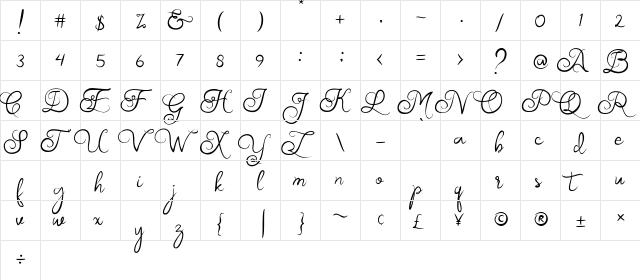 ! # $ % & ( ) * + · – . / 0 1 2
3 4 5 6 7 8 9 : ; < = > ? @ A B
C D E F G H I J K L M N O P Q R
S T U V W X Y Z \ – a b c d e
f g h i j k l m n o p q r s t u
v w x y z { | } ~ ¢ £ ¥ © ® ± ×
÷